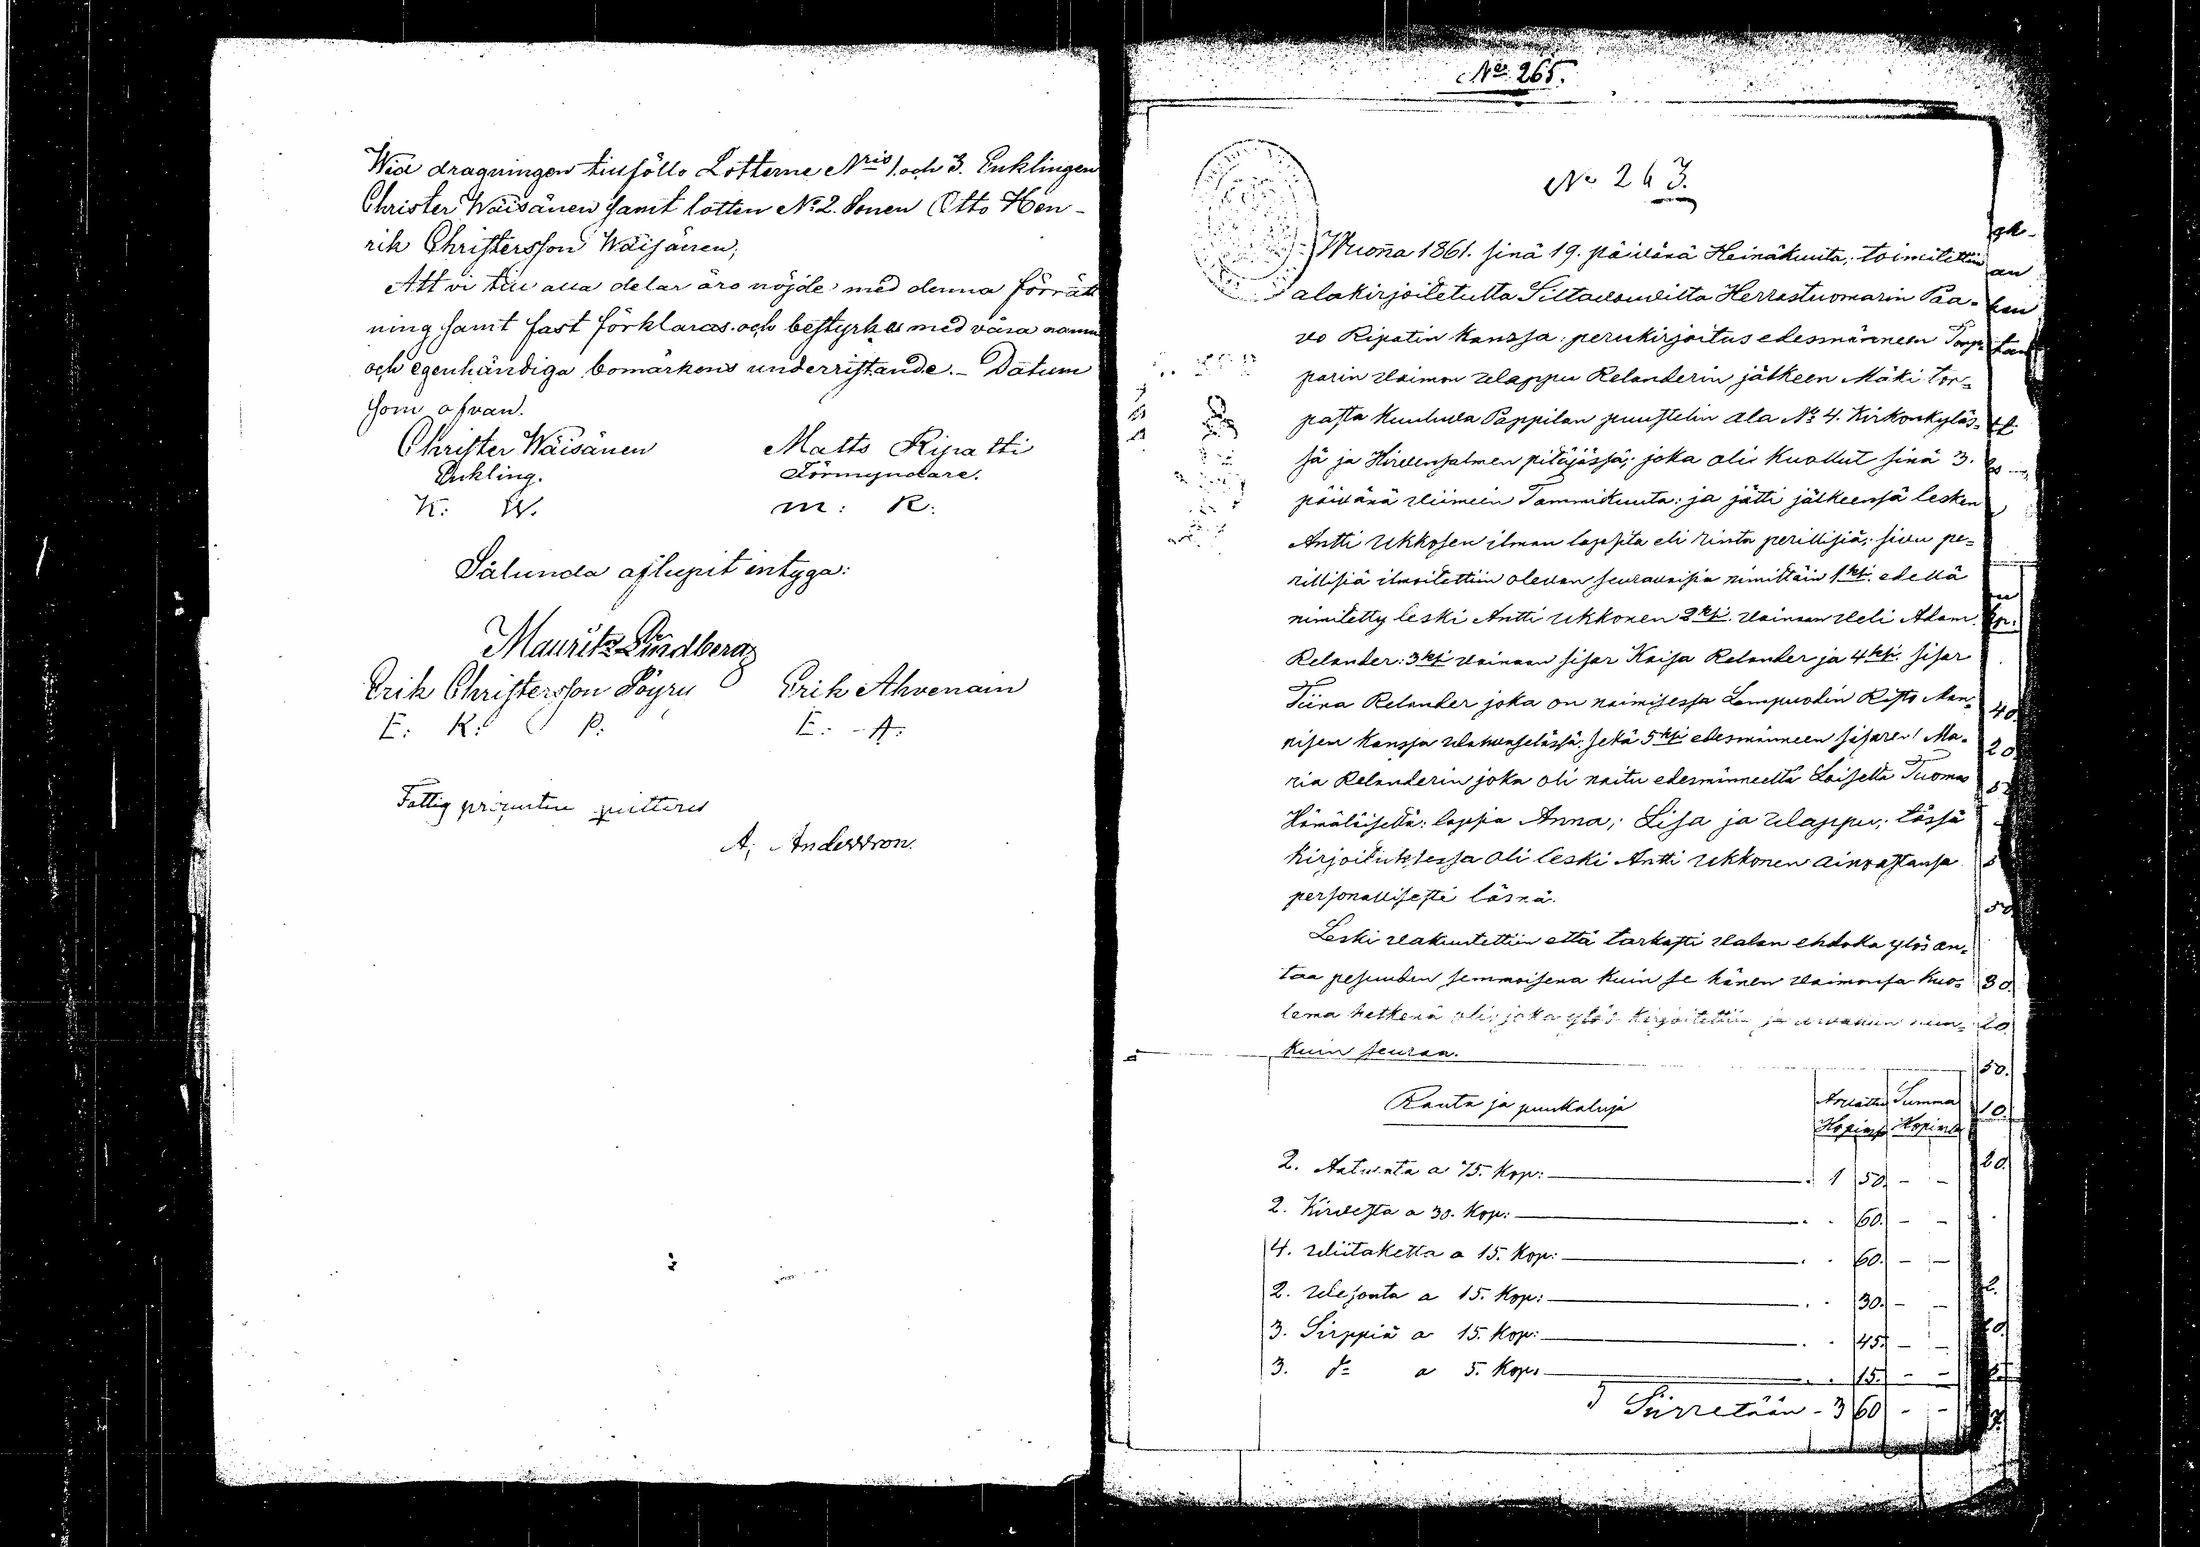 Wid dragningen tillföllo Lotterne Nris 1. och 3. Enklingen
Christer Wäisänen samt lotten No 2. Sonen Otto Hen-
rik Christersson Wäisänen;
Att vi till alla delar äro nöjde med denna förrätt
ning samt fast förklaras och bestyrkes med våra namn
och egenhändiga bomärkens underristande. - Datum
som ofvan.
Christer Wäisänen Matts Ripatti
Enkling. Förmyndare.
K: W. M: R:
Sålunda aflupit intyga:
Mauritz Lindberg
Erik Christersson Pöyry Erik Ahvenain
E: K: P: E: A:
Fattig
A; Andersson.
No 265.
No 263.
Wuonna 1861. sinä 19. päivänä Heinäkuuta; toimitettiin
alakirjoitetulta Siltavouvilta Herrastuomarin Paa-
vo Ripatin kanssa: perukirjoitus edesmänneen Torp-
parin Vaimon Valappu Relanderin jälkeen Mäki tor-
pasta kuuluva Pappilan puustelin ala No 4. Kirkonkyläs-
sä ja Hirvensalmen pitäjässä; joka oli kuollut sinä 3.
päivänä viimein Tammikuuta: ja jätti jälkeensä lesken
Antti Ukkosen ilman lapsita eli rinta perillisiä; sivu pe-
rillisiä ilmoitettiin olevan seuraavaisia nimittäin 1ksi edellä
nimitetty leski Antti Ukkonen 2ksi Vainaan Veli Adam
Relander: 3ksi vainaan sisar Kaisa Relander ja 4ksi sisar
Tiina Relander joka on naimisessa Lampuodin Risto Man-
nisen kanssa sekä 5ksi edesmänneen sisaren Ma-
ria Relanderin joka oli naitu edesmänneeltä Loiselta Tuomas
Hämäläiseltä: lapsia Anna; Lisa ja Valappu; tässä
kirjoituksessa oli leski Antti Ukkonen ainoastansa
personallisesti läsnä.
Leski vakuutettiin että tarkasti valan ehdolla ylös an-
taa pesuuden semmoisena kuin se hänen vaimonsa kuo-
lema hetkenä oli; joka ylös kirjoitettiin ja arvattiin niin-
kuin seuraa.
Rauta ja puukaluja Arvattu Summa
Hopiassa Hopiassa
2. Aatunta a 75. Kop: 1 50. - -
2. Kirvesta a 30. Kop: 60. - -
4. Viitaketta a 15. Kop: 60. - -
2. a 15. Kop: 30. - -
3. Sirppiä a 15. Kop: 45. - -
3. do a 5. Kop: 15. - -
Siirretään - 3 60 - -